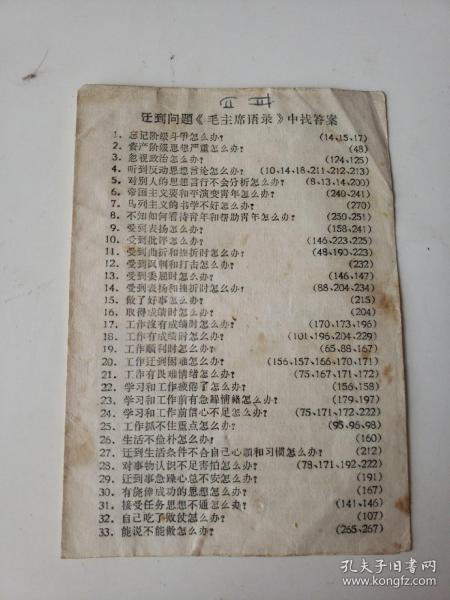 Ⅲ Ⅱ
迁到问题《毛主席语录》中找答案
1．忘记阶级斗争怎么办？(14、15、17)
2．资产阶级思想严重怎么办？(48)
3．忽视政治怎么办？(124、125)
4．听到反动思想言论怎么办？(10、14、18、211、212、213)
5．对别人的思想言行不会分析怎么办？(8、13、14、200)
6．帝国主义要和平演变青年怎么办？(240、241)
7．马列主义的书学不好怎么办？(270)
8．不知如何看待青年和帮助青年怎么办？(250、251)
9．受到表扬怎么办？(158、241)
10．受到批评怎么办？(146、223、225)
11．受到曲折和挫折时怎么办？(48、190、223)
12．受到讽刺和打击怎么办？(232)
13．受到委屈时怎么办？(146、147)
14．受到表扬和挫折时怎么办？(88、204、234)
15．做了好事怎么办？(215)
16．取得成绩时怎么办？(204)
17．工作没有成绩时怎么办？(170、173、196)
18．工作有成绩时怎么办？(101、196、204、229)
19．工作顺利时怎么办？(65、88、167)
20．工作迁到困难怎么办？(156、157、166、170、171)
21．工作有畏难情绪怎么办？(75、167、171、172)
22．学习和工作疲倦了怎么办？(156、158)
23．学习和工作前有急躁情绪怎么办？(179、197)
24．学习和工作前信心不足怎么办？(75、171、172、222)
25．工作抓不住重点怎么办？(95、96、98)
26．生活不俭朴怎么办？(160)
27．迁到生活条件不合自己心愿和习惯怎么办？(212)
28．对事物认识不足害怕怎么办？(78、171、192、222)
29．迁到事急躁心总不安怎么办？(191)
30．有侥倖成功的思想怎么办？(167)
31．接受任务思想不通怎么办？(141、146)
32．自己吃了败仗怎么办？(107)
33．能说不能做怎么办？(265、267)
孔夫子旧书网
https://www.kongfz.com